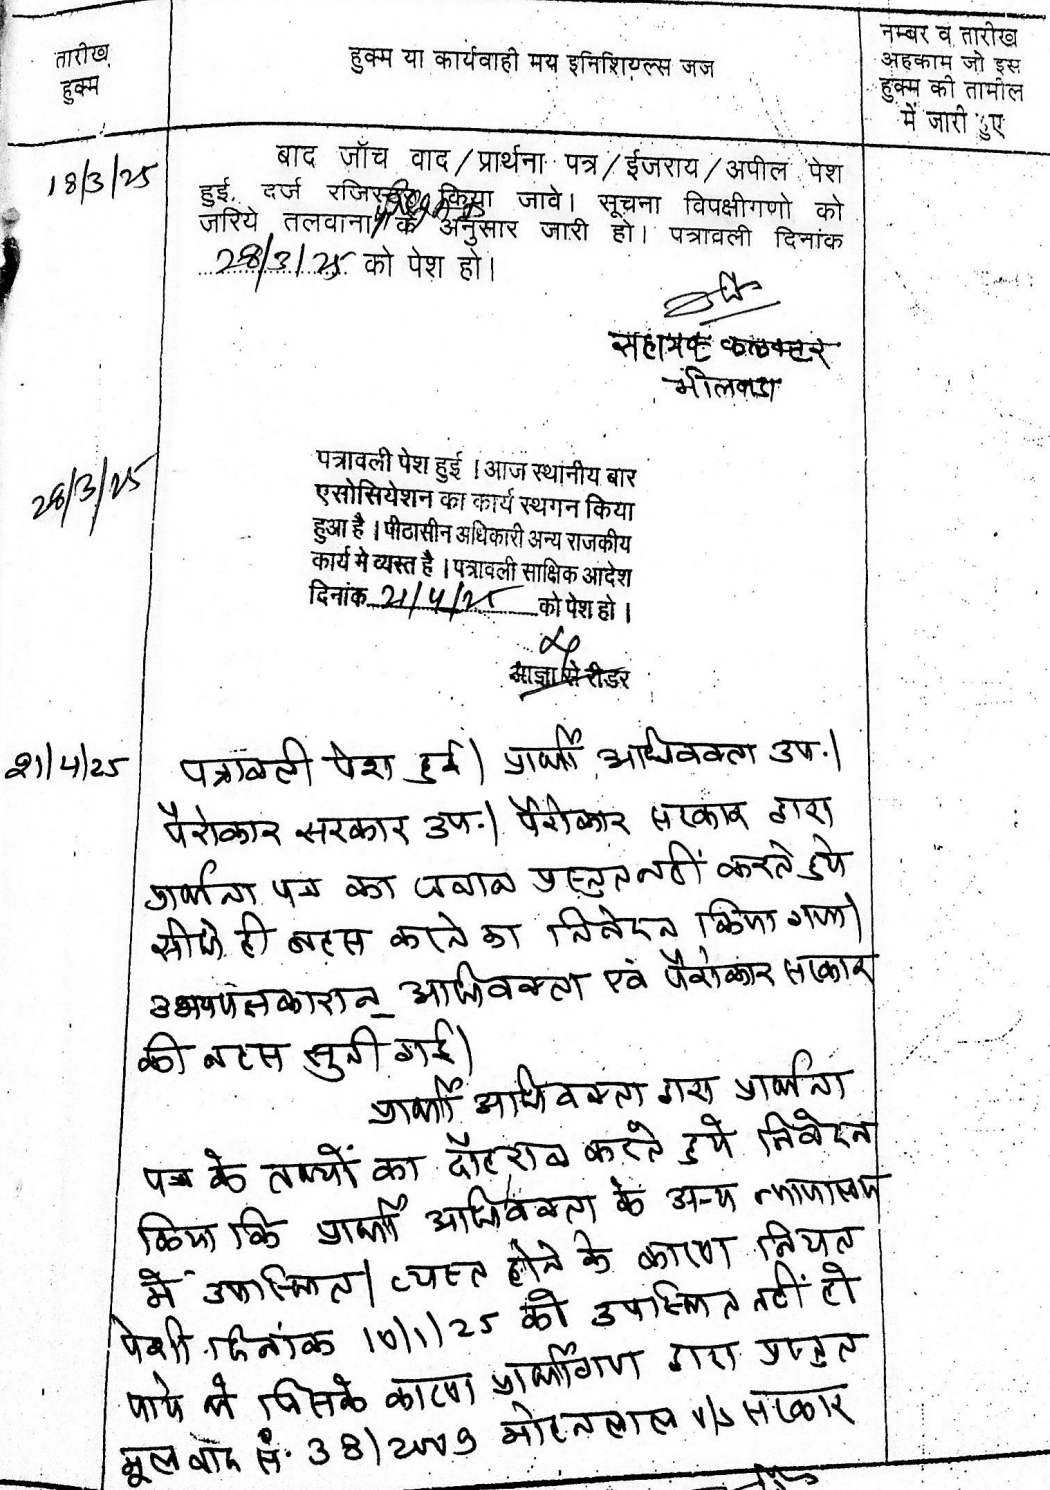 तारीख
हुक्म
हुक्म या कार्यवाही मय इनिशियल्स जज
नम्बर व तारीख
अहकाम जो इस
हुक्म की तामील
में जारी हुए
18/3/25
बाद जाँच वाद/प्रार्थना पत्र/ईजराय/अपील पेश
हुई, दर्ज रजिस्टर किया जावे। सूचना विपक्षीगणो को
जरिये तलवाना के अनुसार जारी हो। पत्रावली दिनांक
28/3/25 को पेश हो।
सहायक कलक्टर
भीलवाडा
28/3/25
पत्रावली पेश हुई । आज स्थानीय बार
एसोसियेशन का कार्य स्थगन किया
हुआ है । पीठासीन अधिकारी अन्य राजकीय
कार्य मे व्यस्त है । पत्रावली साक्षिक आदेश
दिनांक 21/4/25 को पेश हो ।
आज्ञा से रीडर
21/4/25
पत्रावली पेश हुई। प्रार्थी अधिवक्ता उप.।
पैरोकार सरकार उप.। पैरोकार सरकार द्वारा
प्रार्थना पत्र का जवाब प्रस्तुत नहीं करते हुये
सीधे ही बहस करने का निवेदन किया गया।
उभयपक्षकारान अधिवक्ता एवं पैरोकार सरकार
की बहस सुनी गई।
प्रार्थी अधिवक्ता द्वारा प्रार्थना
पत्र के तथ्यों का दौहराव करते हुये निवेदन
किया कि प्रार्थी अधिवक्ता के अन्य न्यायालय
में उपस्थित/व्यस्त होने के कारण नियत
पेशी दिनांक 10/1/25 को उपस्थित नहीं हो
पाये थे जिसके कारण प्रार्थीगण द्वारा प्रस्तुत
मूल वाद सं. 38/2009 मोहनलाल v/s सरकार